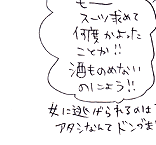 もー
スーツ求めて
何度かよった
ことか!!
酒ものめない
のによう!!
女に逃げられるのは
アタシなんてドンが